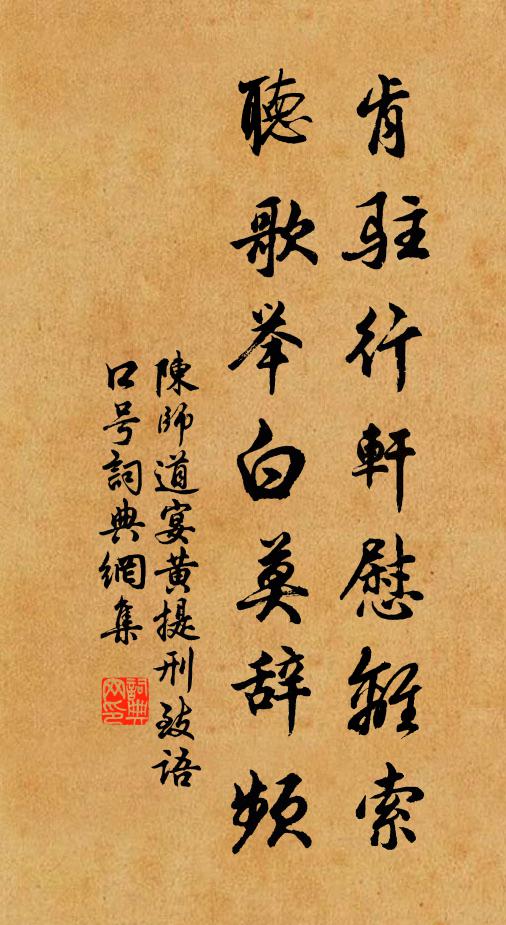 肯驻行軒慰離索
聽歌举白莫辞頻
陳師道宴黄提刑致語
口号詞典網集
詞典网印